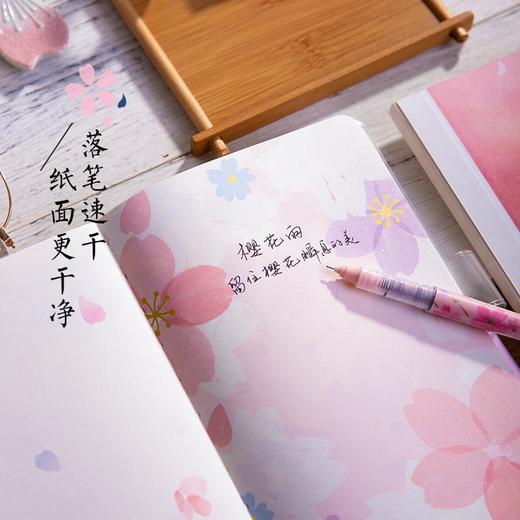 落笔速干
纸面更干净
樱花雨
留住樱花瞬息的美